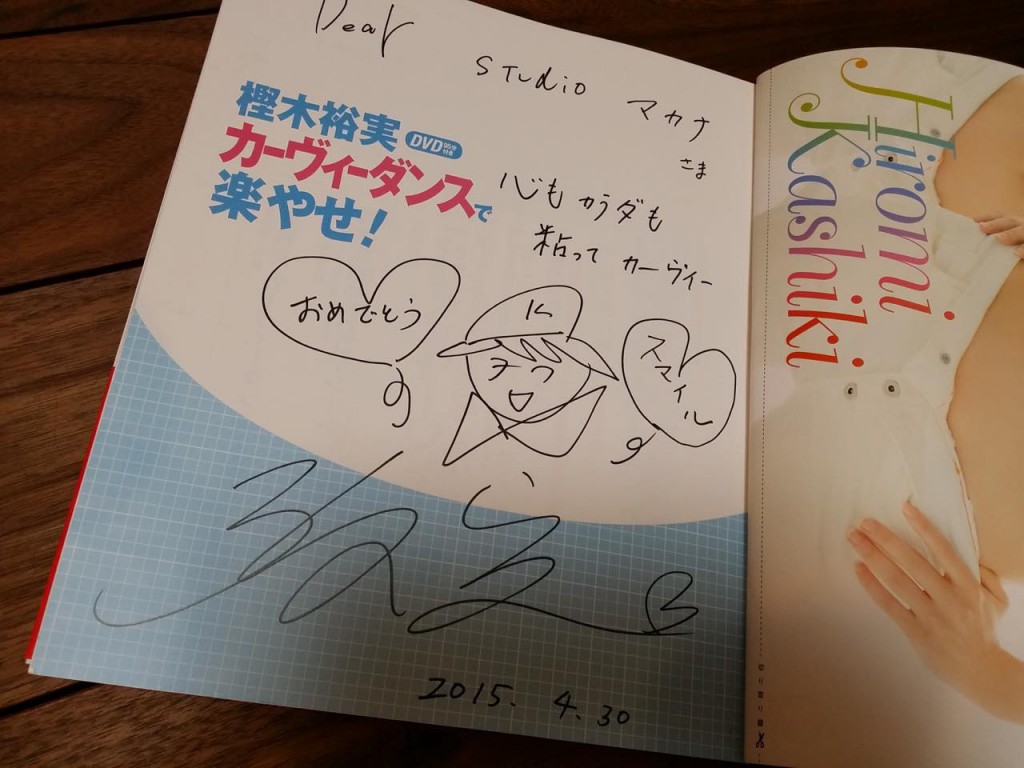 Dear
STudio マカナ
さま
樫木裕実
DVD 95分付き
カーヴィーダンスで
楽やせ!
心も カラダも
粘って カーヴィー
おめでとう
K
スマイル
2015. 4. 30
Hiromi
Kashiki
切り取り線